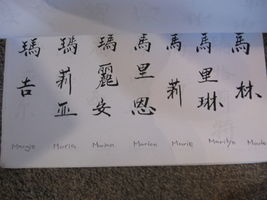 瑪吉
瑪莉亚
瑪麗安
馬里恩
馬莉
馬里琳
馬林
Margie Maria Marian Marion Marie Marilyn